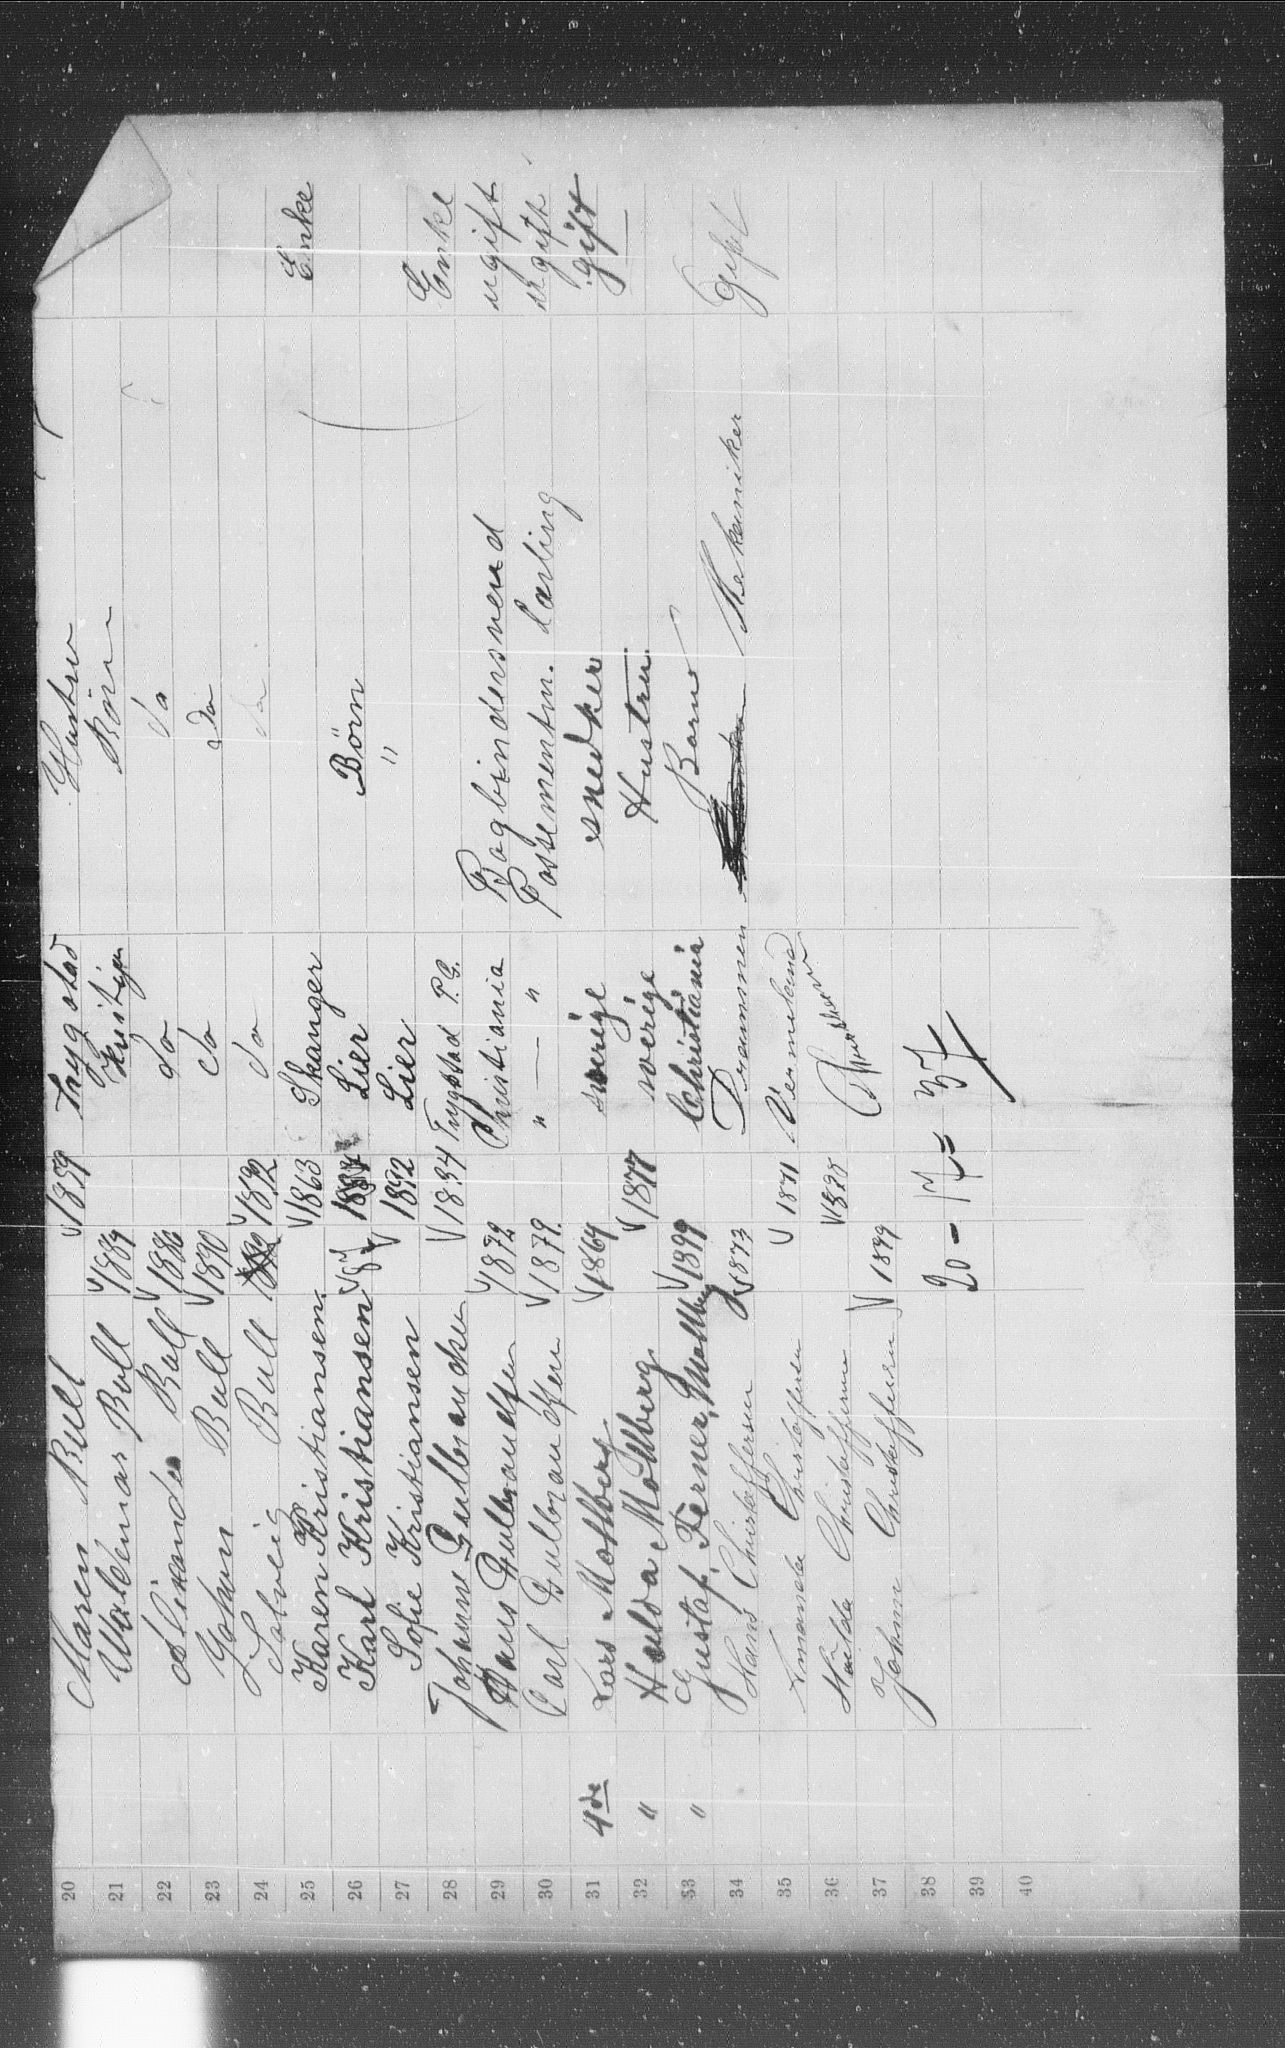 20 Maren Bull 1859 Trygstad Hustru
21 Waldemar Bull 1884 Børn
22 Bull 1886 do do
23 Johan Bull 1890 do do
24 Solveig Bull 1892 do do
25 Karen Kristiansen 1863 Enke
26 Karl Kristiansen 87 Lier Børn
27 Sofie Kristiansen 1892 Lier "
28 Johanne Gulbrandsen 1834 Trygstad P.G. Enke
29 Hans Gulbrandsen 1872 Christiania Bogbindersvend ugift
30 Carl Gulbrandsen 1879 " — " Possementm. Lærling ugift
31 4de Lars Mollberg 1864 sverige snedker gift
32 " Hulda Mollberg 1877 sverige Hustru
33 " Gustaf Ferner Mollberg 1899 Christiania Barn
34 Hans Christoffersen 1873 Drammen Mekaniker Gift
35 Amanda Christoffersen 1871 Vermeland
36 Christoffersen
37 Johan Christoffersen 1899
38 20 - 17 = 37
39
40